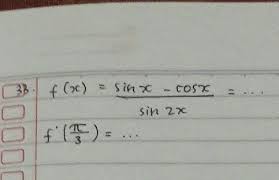 33. f(x) = sin x - cos x = ...
sin 2x
f'(π/3) = ...